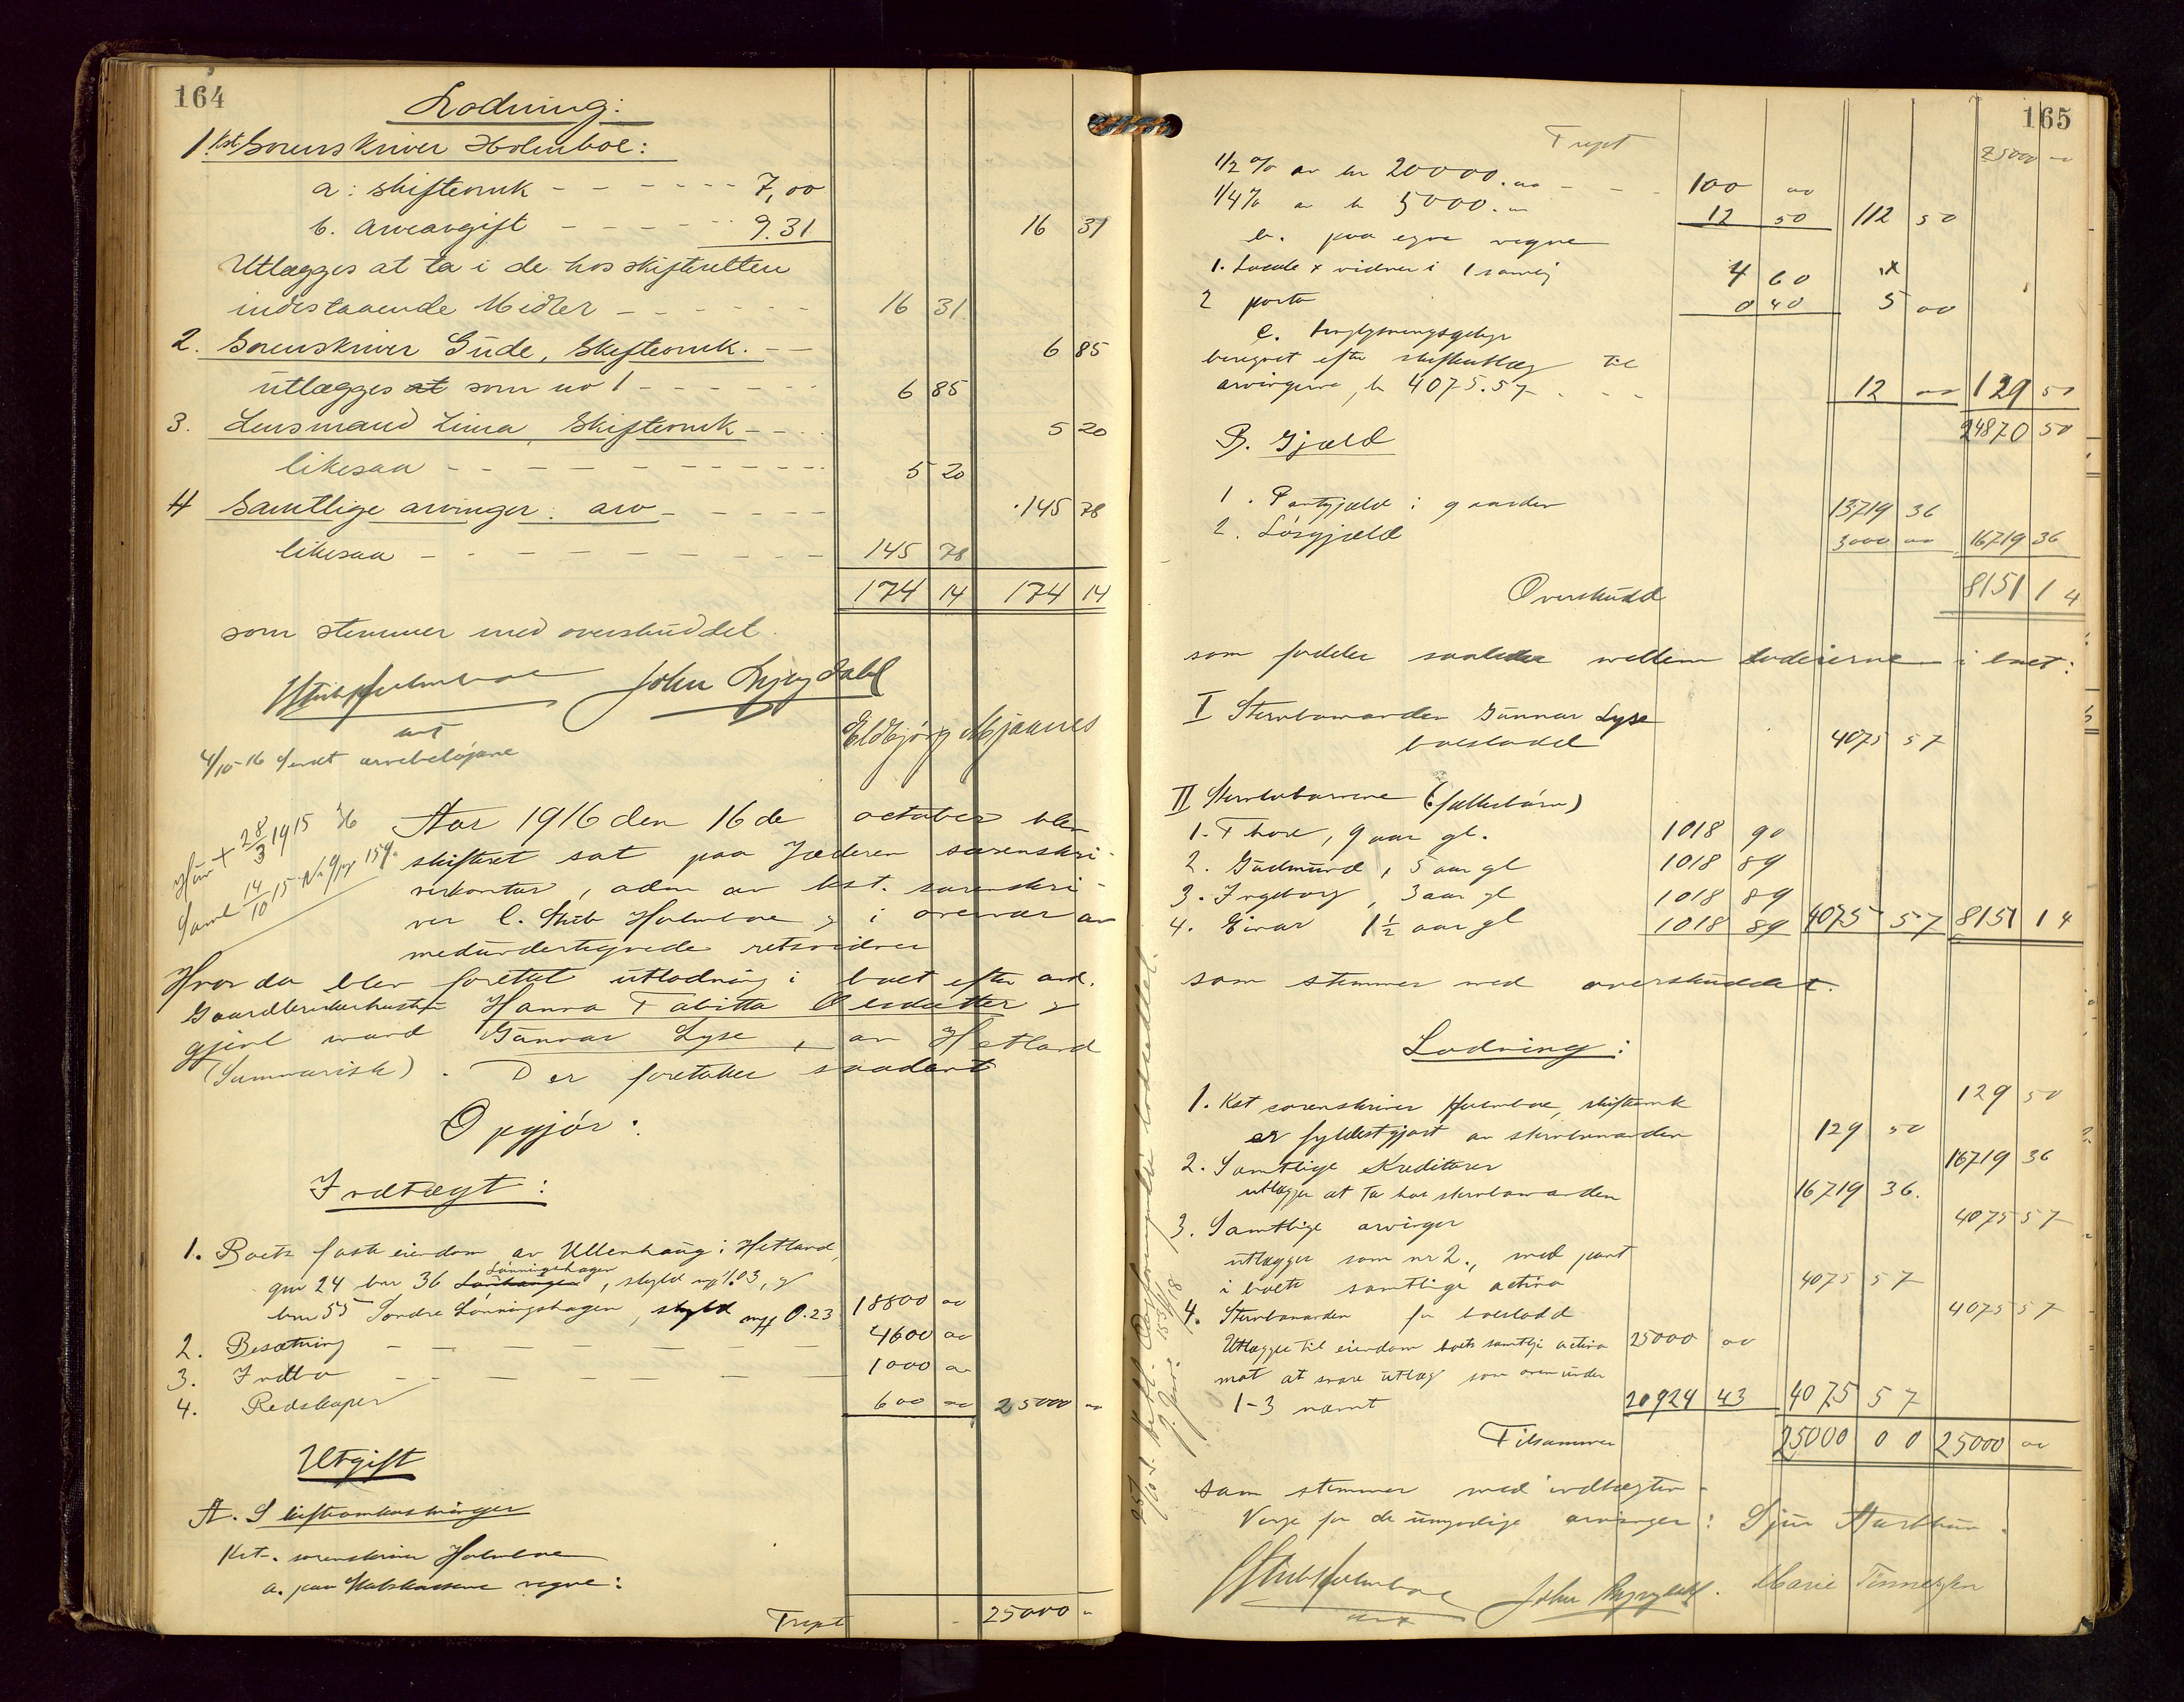 164
Lodning:
1. kst. Sorenskriver Holmboe:
a: skifteomk - - - - - - 7,00
b. arveavgift - - - - - - 9.31 16 31
Utlægges at ta i de hos skifteretten
indestaaende Midler - - - - - - 16 31
2. Sorenskriver Gude, Skifteomk. - - 6 85
utlægges at som no 1 - - - - - - 6 85
3. Lensmand Lima, Skifteomk - - - 5 20
likesaa - - - - - - - - - - 5 20
4 Samtlige arvinger: arv - - - - - 145 78
likesaa - - - - - - - - - - 145 78
174 14 174 14
som stemmer med overskuddet.
Stub Holmboe John Lyngdahl
cst Eldbjørg Mjaanes
4/10-16 sendt arvebeløpene
Hun + 28/3 1915 36
Saml 14/10 15. No 9 pg 159.
Aar 1916 den 16de october blev
skifteret sat paa Jæderen sorenskri-
verkontor, adm av kst. sorenskri-
ver C. Stub Holmboe i overvær av
medundertegnede retsvidner
Hvor da blev foretat utlodning i boet efter avd.
Gaardbrukerhustru Hanna Tabitta Olsdatter &
gjenl mand Gunnar Lyse, av Hetland
(Summarisk). Der foretokes saadant
Opgjör:
Indtægt:
1. Boets faste eiendom av Ullenhaug i Hetland,
gnr 24 bnr 36 Lönningshagen, skyld mrk 1.03, og
bnr 55 Söndre Lönningshagen, skyld mrk 0.23 18800 00
2. Besætning - - - - - - - 4600 00
3. Indbo - - - - - - - 1000 00
4. Redskaper 600 00 25000 00
Utgift
A. Skifteomkostninger
Kst. sorenskriver Holmboe
a. paa Statskassens vegne:
Trspt 25000 -
165
Trspt 25000 -
1/2 % av kr 20000.00 - - - 100 00
1/4 % av kr 5000.00 12 50 112 50
b. paa egne vegne
1. Lokale + vidner i 1 samling 4 60
2 porto 0 40 5 00
c. tinglysningsgebyr
beregnet efter skifteutlæg til
arvingerne, kr 4075.57 - - - 12 00 129 50
24870 50
B. Gjæld
1. Pantgjæld i gaarden 13719 36
2. Løsgjæld 3000 00 16719 36
Overskudd 8151 14
som fordeles saaledes mellem lodeierne i boet:
I Stervbomanden Gunnar Lyse
boeslodd 4075 57
II Stervbobarnene (fællesbörn)
1. Thore, 9 aar gl. 1018 90
2. Gudmund, 5 aar gl 1018 89
3. Ingeborg, 3 aar gl 1018 89
4. Einar 1½ aar gl 1018 89 4075 57 8151 14
som stemmer med overskuddet.
Lodning:
1. Kst sorenskriver Holmboe, skifteomk 129 50
er fyldestgjort av stervbomanden 129 50
2. Samtlige Kreditorer 16719 36
utlægges at ta hos stervbomanden 16719 36.
3. Samtlige arvinger 4075 57
utlægges som nr 2., med pant
i boets samtlige activa 4075 57
4. Stervbomanden for boeslodd 4075 57
Utlægges til eiendom boets samtlige activa 25000 00
mot at svare utlæg som ovenunder
1-3 nævnt 20924 43 4075 57
Tilsammen 25000 00 25000 00
som stemmer med indtægten.
Verge for de umyndige arvinger:
Stub Holmboe John Lyngdahl. Marie Tönnessen
cst